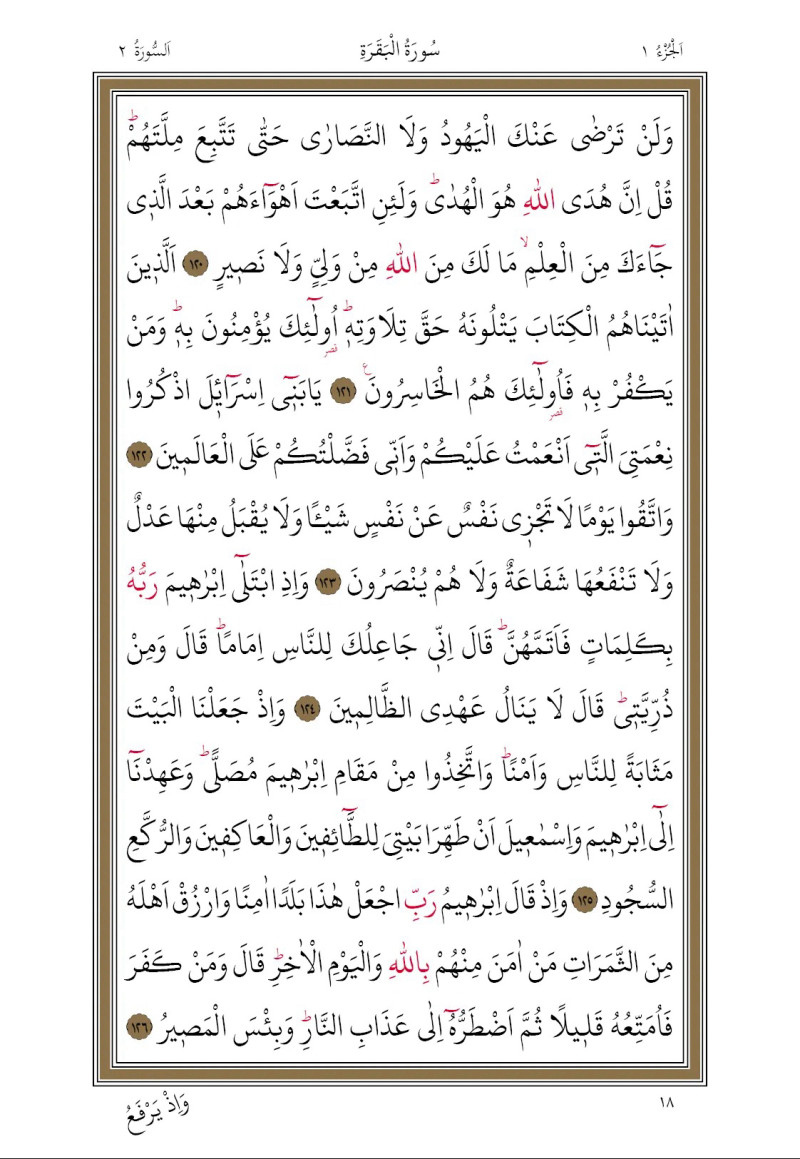 اَلْجُزْءُ ١
سُورَةُ الْبَقَرَةِ
اَلسُّورَةُ ٢
وَلَنْ تَرْضٰى عَنْكَ الْيَهُودُ وَلَا النَّصَارٰى حَتّٰى تَتَّبِعَ مِلَّتَهُمْۜ
قُلْ اِنَّ هُدَى اللّٰهِ هُوَ الْهُدٰىۜ وَلَئِنِ اتَّبَعْتَ اَهْوَٓاءَهُمْ بَعْدَ الَّذ۪ى
جَٓاءَكَ مِنَ الْعِلْمِۙ مَا لَكَ مِنَ اللّٰهِ مِنْ وَلِىٍّ وَلَا نَص۪يرٍ ١٢٠ اَلَّذ۪ينَ
اٰتَيْنَاهُمُ الْكِتَابَ يَتْلُونَهُ حَقَّ تِلَاوَتِه۪ۜ اُو۬لٰٓئِكَ يُؤْمِنُونَ بِه۪ۜ وَمَنْ
قصر
يَكْفُرْ بِه۪ فَاُو۬لٰٓئِكَ هُمُ الْخَاسِرُونَ۟ ١٢١ يَابَن۪ٓى اِسْرَٓائ۪لَ اذْكُرُوا
قصر
نِعْمَتِىَ الَّت۪ٓى اَنْعَمْتُ عَلَيْكُمْ وَاَنّ۪ى فَضَّلْتُكُمْ عَلَى الْعَالَم۪ينَ ١٢٢
وَاتَّقُوا يَوْمًا لَا تَجْز۪ى نَفْسٌ عَنْ نَفْسٍ شَيْـًٔا وَلَا يُقْبَلُ مِنْهَا عَدْلٌ
وَلَا تَنْفَعُهَا شَفَاعَةٌ وَلَا هُمْ يُنْصَرُونَ ١٢٣ وَاِذِ ابْتَلٰٓى اِبْرٰه۪يمَ رَبُّهُ
بِكَلِمَاتٍ فَاَتَمَّهُنَّۜ قَالَ اِنّ۪ى جَاعِلُكَ لِلنَّاسِ اِمَامًاۜ قَالَ وَمِنْ
ذُرِّيَّت۪ىۜ قَالَ لَا يَنَالُ عَهْدِى الظَّالِم۪ينَ ١٢٤ وَاِذْ جَعَلْنَا الْبَيْتَ
مَثَابَةً لِلنَّاسِ وَاَمْنًاۜ وَاتَّخِذُوا مِنْ مَقَامِ اِبْرٰه۪يمَ مُصَلًّىۜ وَعَهِدْنَٓا
اِلٰٓى اِبْرٰه۪يمَ وَاِسْمٰع۪يلَ اَنْ طَهِّرَا بَيْتِىَ لِلطَّٓائِف۪ينَ وَالْعَاكِف۪ينَ وَالرُّكَّعِ
السُّجُودِ ١٢٥ وَاِذْ قَالَ اِبْرٰه۪يمُ رَبِّ اجْعَلْ هٰذَا بَلَدًا اٰمِنًا وَارْزُقْ اَهْلَهُ
مِنَ الثَّمَرَاتِ مَنْ اٰمَنَ مِنْهُمْ بِاللّٰهِ وَالْيَوْمِ الْاٰخِرِۜ قَالَ وَمَنْ كَفَرَ
فَاُمَتِّعُهُ قَل۪يلًا ثُمَّ اَضْطَرُّهُٓ اِلٰى عَذَابِ النَّارِۜ وَبِئْسَ الْمَص۪يرُ ١٢٦
١٨
وَاِذْ يَرْفَعُ